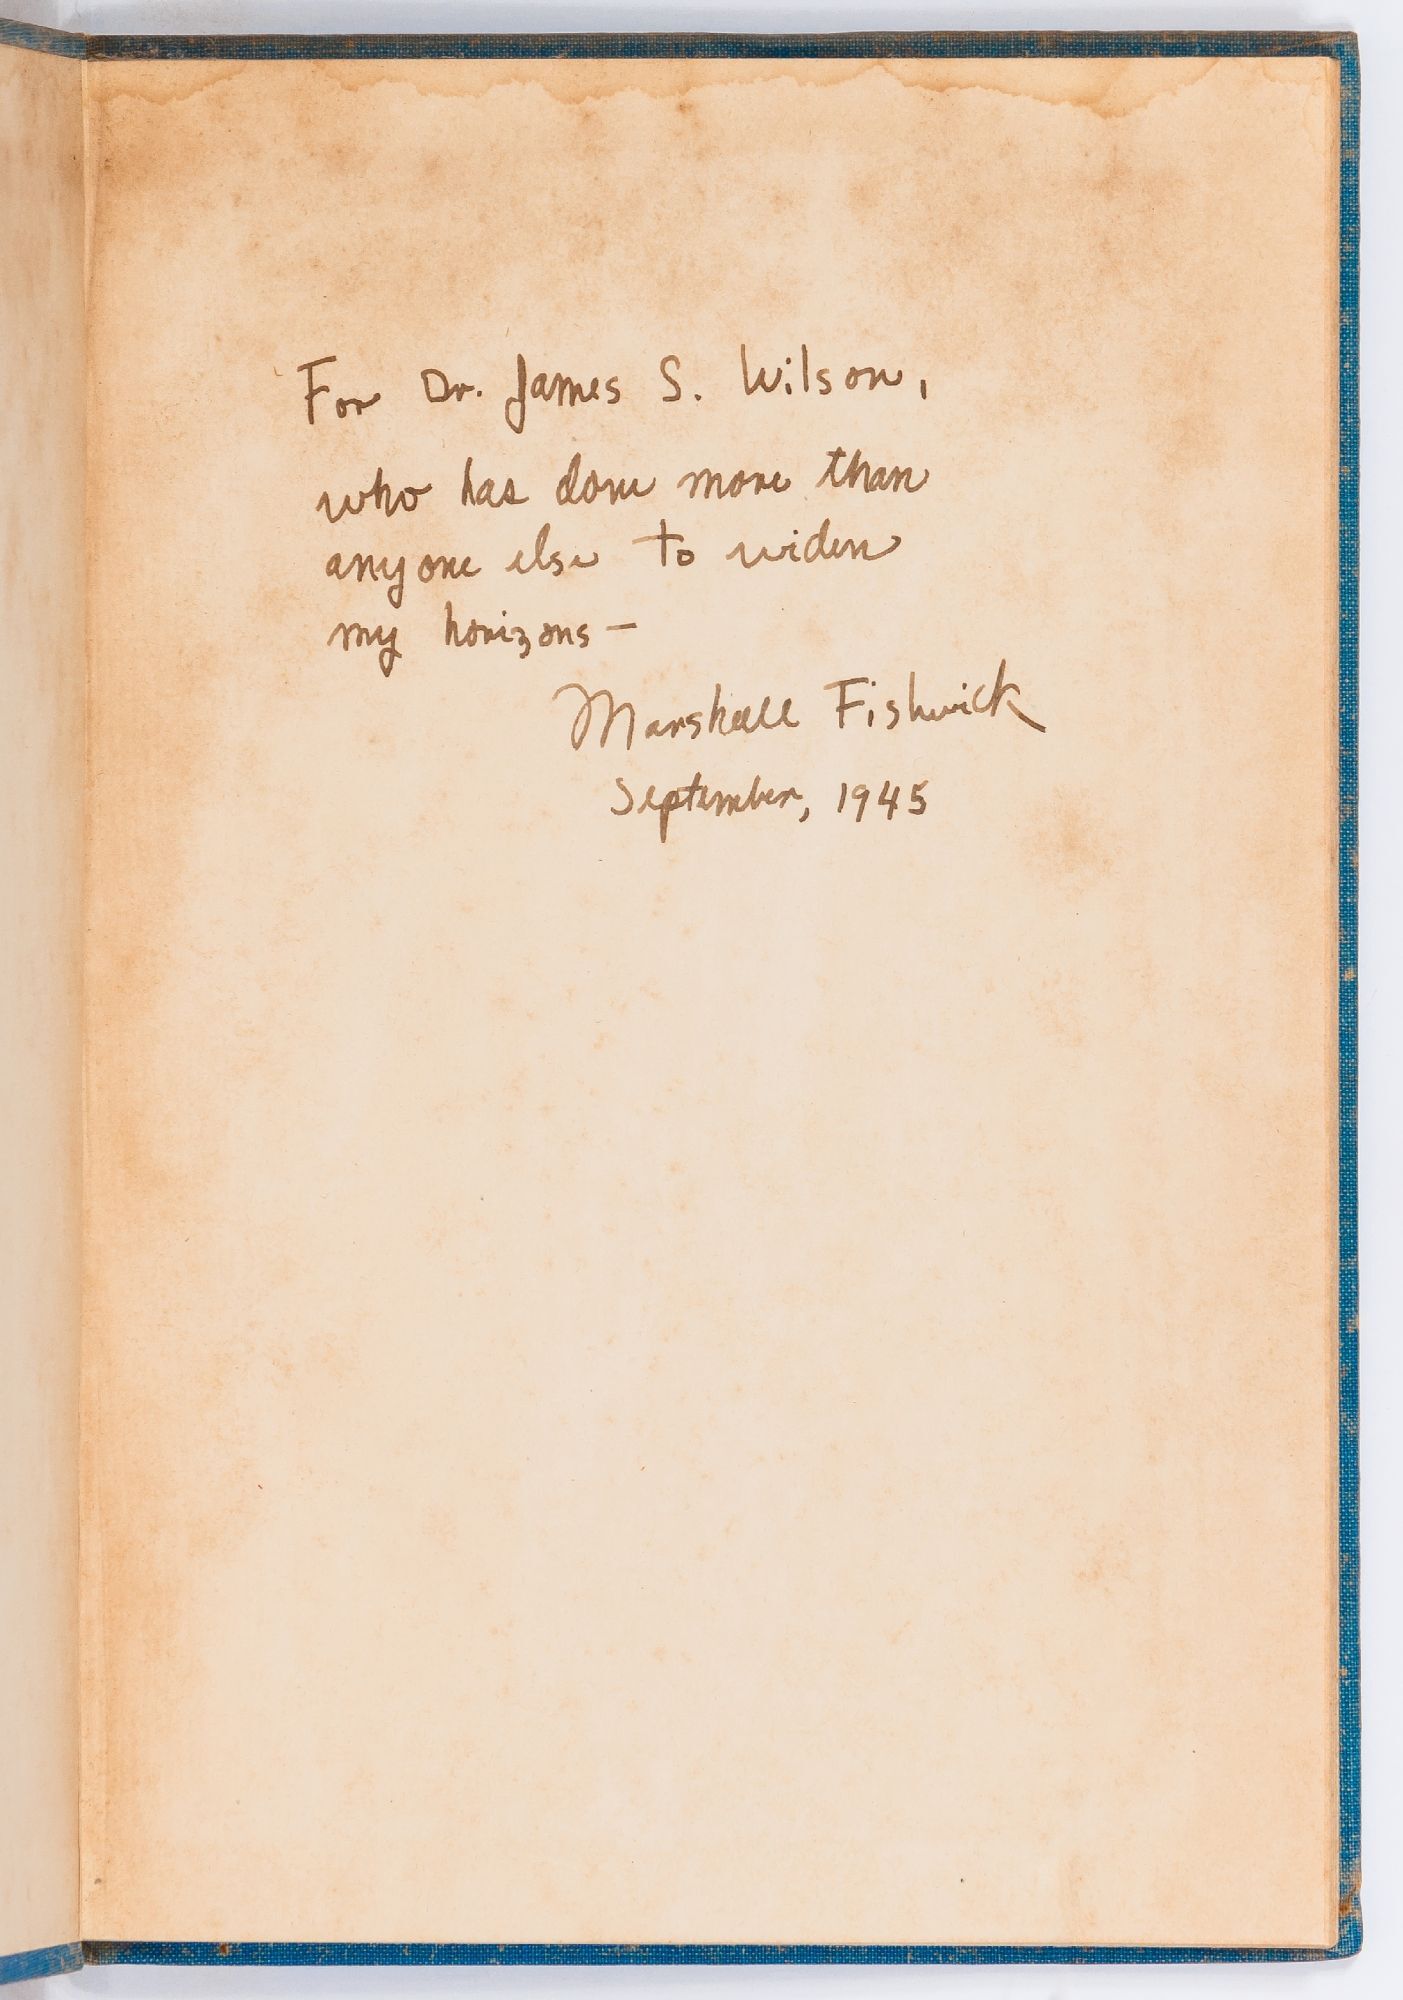 For Dr. James S. Wilson,
who has done more than
anyone else to widen
my horizons —
Marshall Fishwick
September, 1945